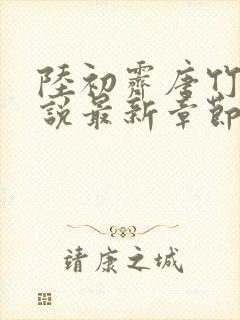 陸初霽唐竹
說最新章節
靖康之城